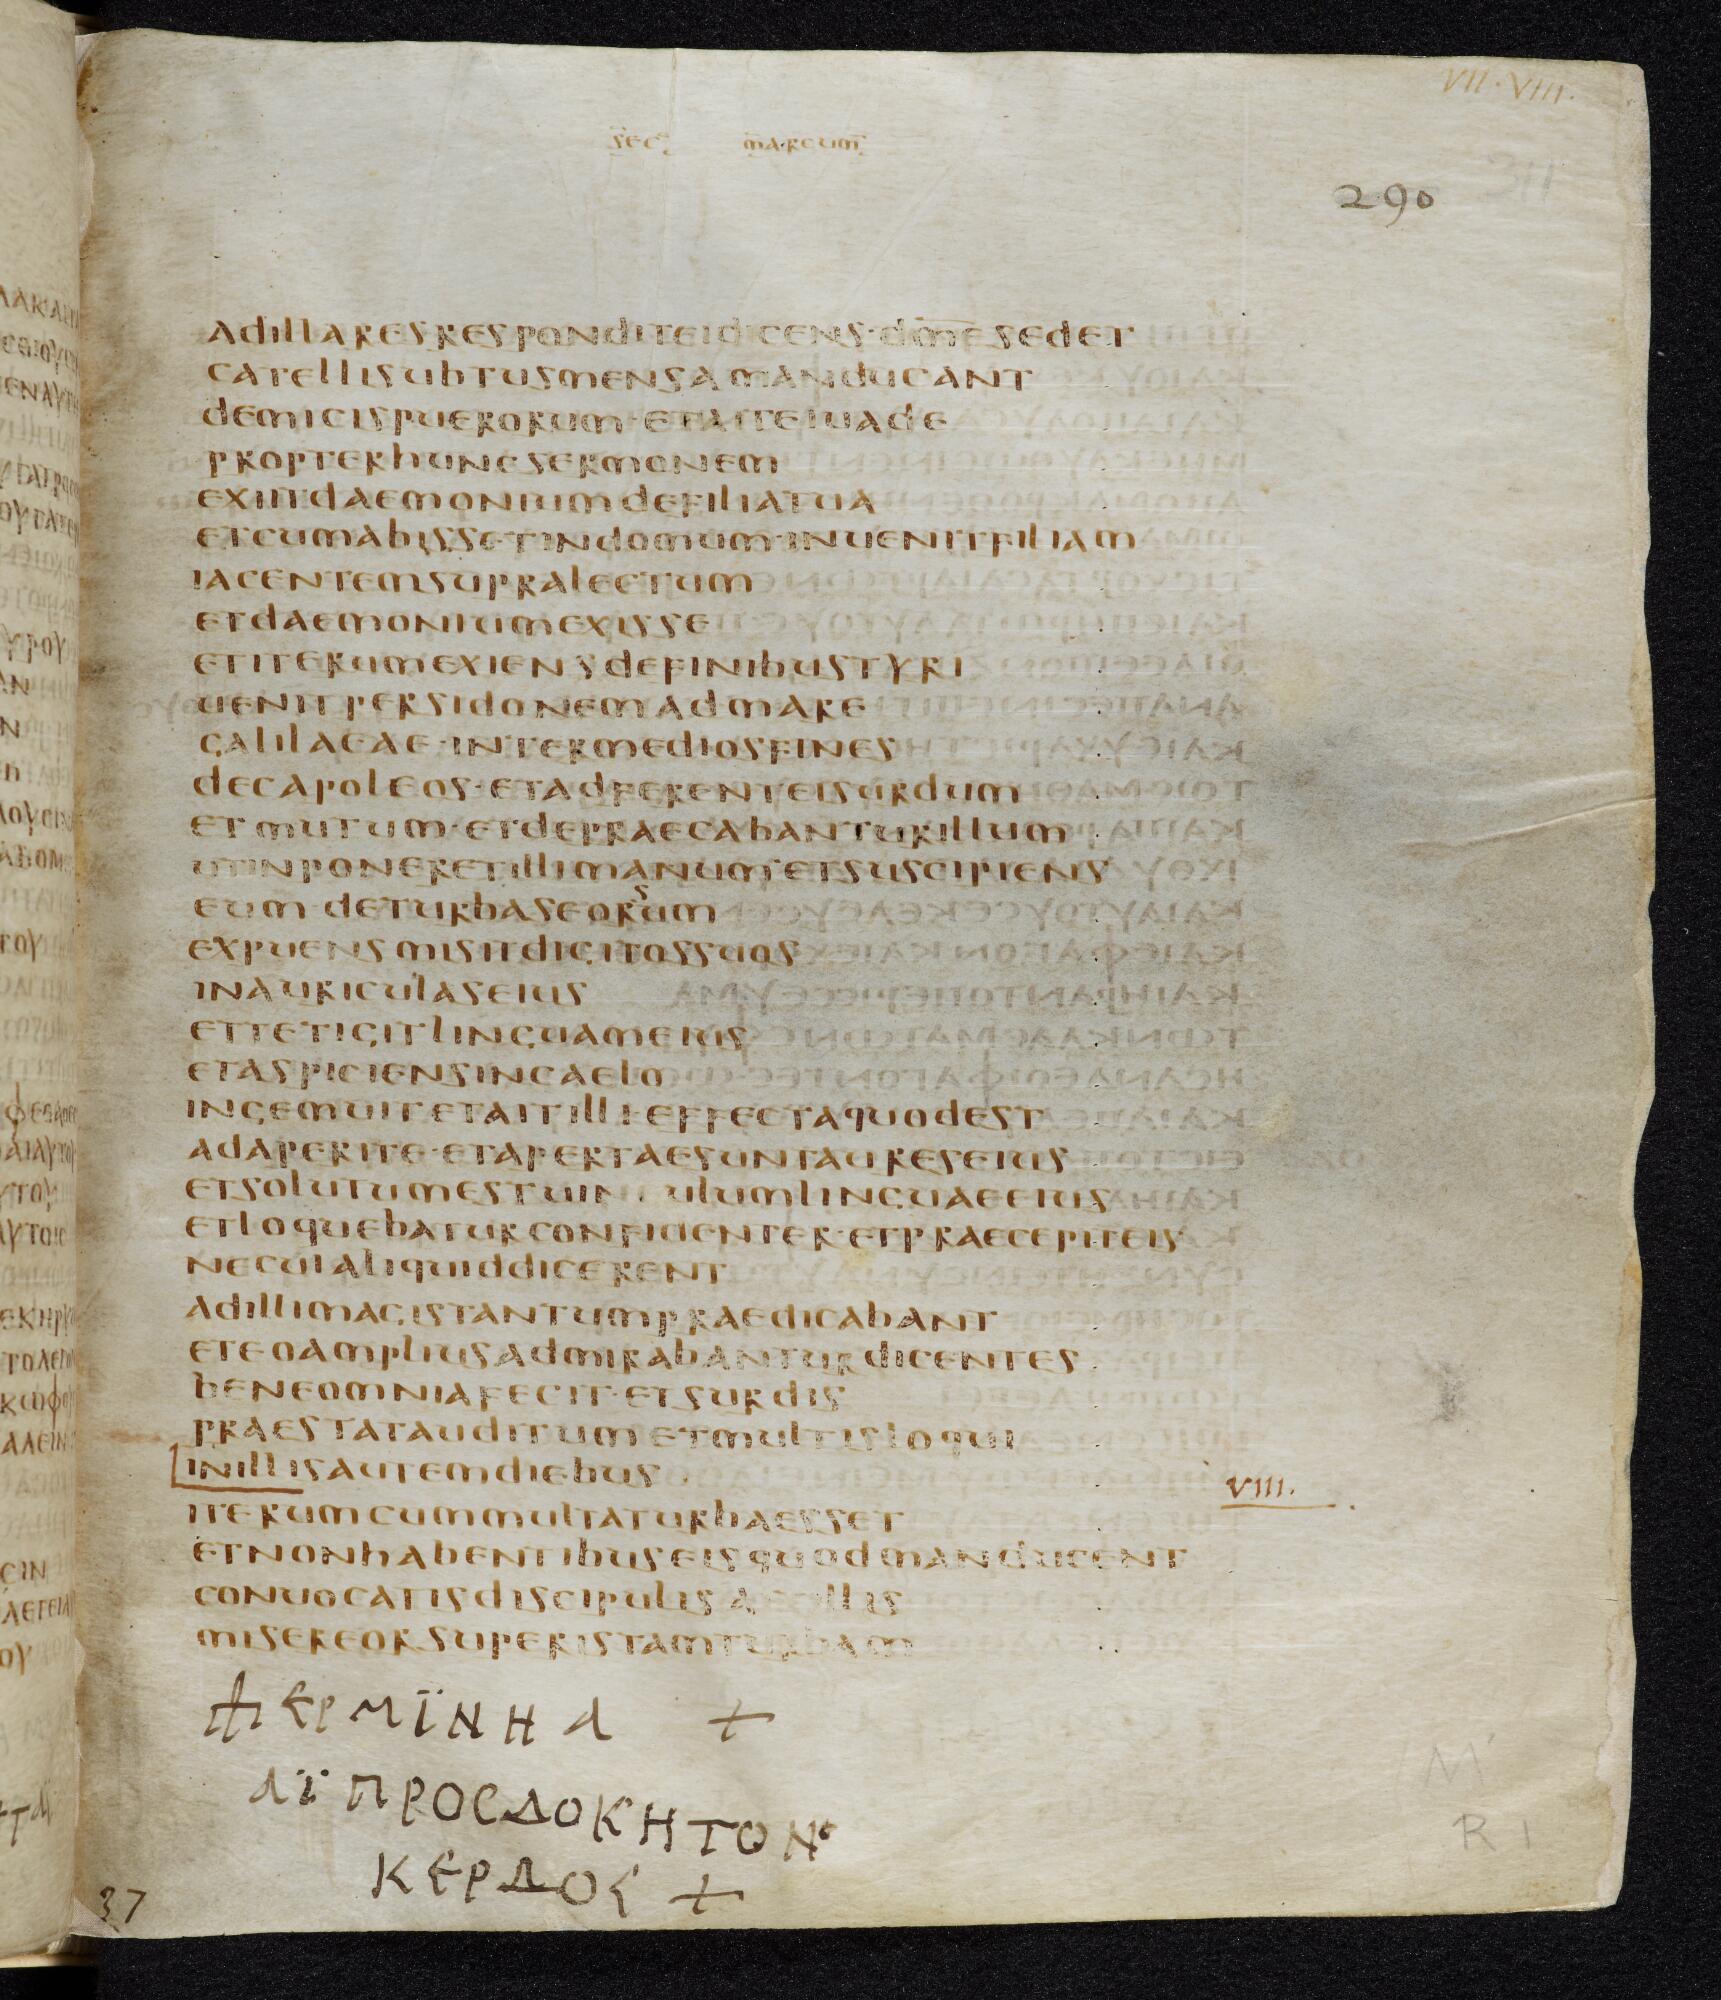 VII·VIII·
sec marcum
290
311
adillaresresponditeidicens·dmesedet
catellisubtusmensamanducant
demicispuerorum·etaiteiuade
propterhuncsermonem
exiitdaemoniumdefiliatua
etcumabissetindomum·inuenitfiliam
iacentemsupralectum
etdaemoniumexisse
etiterumexiensdefinibustyri
uenitpersidonemadmare
galilaeae·intermediosfines
decapoleos·etadferenteisurdum
etmutum·etdepraecabanturillum
utinponeretillimanum·etsuscipiens
eumdeturbaseorsum
expuensmisitdigitossuos
inauriculaseius
ettetigitlinguameius
etaspiciensincaelo
ingemuitetaitilli·effectaquodest
adaperite·etapertaesuntaureseius
etsolutumestuinculumlinguaeeius
etloquebaturconfidenter·etpraecepiteis
necuialiquiddicerent
adillimagistantumpraedicabant
eteoampliusadmirabanturdicentes
beneomniafecit·etsurdis
praestatauditumetmultisloqui
inillisautemdiebus
VIII·
iterumcummultaturbaesset
etnonhabentibuseisquodmanducent
conuocatisdiscipulisa illis
misereorsuperistamturbam
+ ερμϊνηα +
αϊπροσδοκητον
κερδος +
M
R 1
37